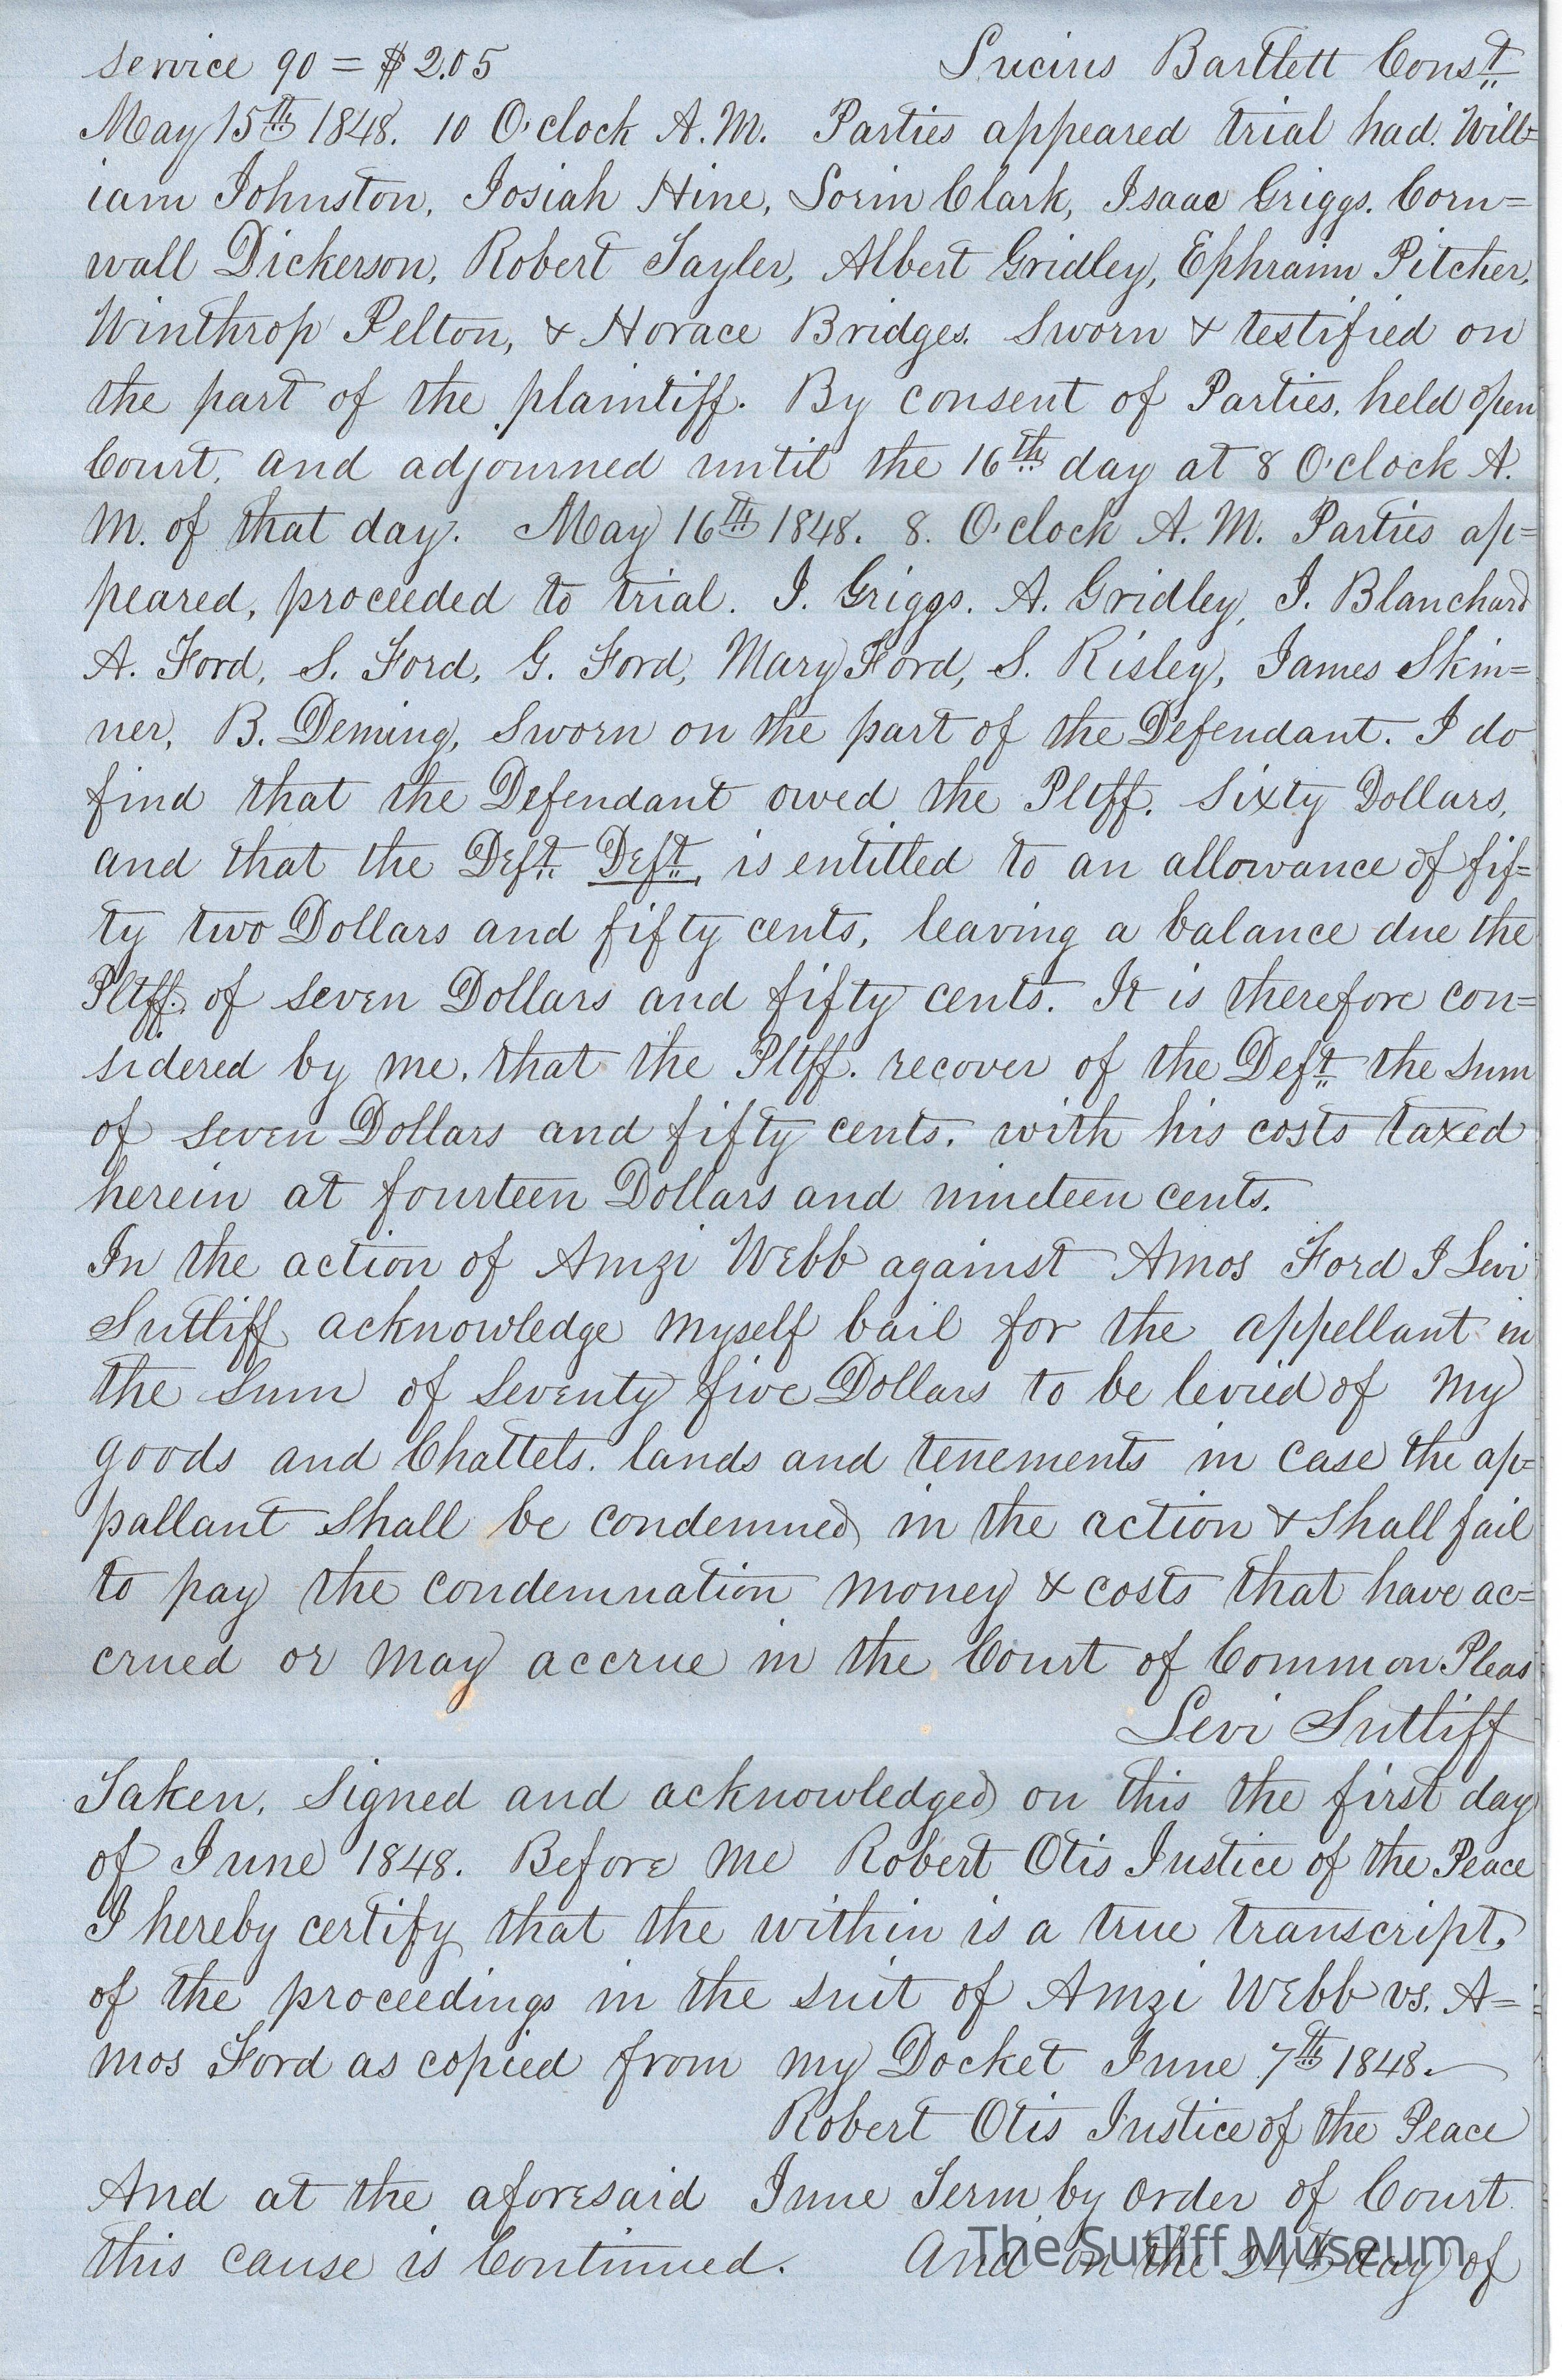 service 90 = $2.05 Lucius Bartlett Const.
May 15th 1848. 10 O'clock A.M. Parties appeared trial had. Will=
iam Johnston, Josiah Hine, Lorin Clark, Isaac Griggs. Corn=
wall Dickerson, Robert Tayler, Albert Gridley, Ephraim Pitcher,
Winthrop Pelton, & Horace Bridges. Sworn & testified on
the part of the plaintiff. By consent of Parties, held open
Court, and adjourned until the 16th day at 8 O'clock A.
M. of that day. May 16th 1848. 8. O'clock A. M. Parties ap=
peared, proceeded to trial. I. Griggs. A. Gridley, J. Blanchard
A. Ford, S. Ford, G. Ford, Mary Ford, S. Risley, James Skin=
ner, B. Deming, Sworn on the part of the Defendant. I do
find that the Defendant owed the Pltff. Sixty Dollars,
and that the Deft. Deft. is entitled to an allowance of fif=
ty two Dollars and fifty cents, leaving a balance due the
Pltff. of seven Dollars and fifty cents. It is therefore con=
sidered by me, that the Pltff. recover of the Deft. the sum
of seven Dollars and fifty cents. with his costs taxed
herein at fourteen Dollars and nineteen cents.
In the action of Amzi Webb against Amos Ford I Levi
Sutliff acknowledge myself bail for the appellant in
the sum of seventy five Dollars to be levied of my
goods and Chattels. lands and tenements in case the ap=
pallant shall be condemned in the action & shall fail
to pay the condemnation money & costs that have ac=
crued or may accrue in the Court of Common Pleas
Levi Sutliff
Taken, signed and acknowledged on this the first day
of June 1848. Before me Robert Otis Justice of the Peace
I hereby certify that the within is a true transcript,
of the proceedings in the suit of Amzi Webb vs. A=
mos Ford as copied from my Docket June 7th 1848.
Robert Otis Justice of the Peace
And at the aforesaid June Term by order of Court
this cause is Continued. And on the 24th day of
The Sutliff Museum